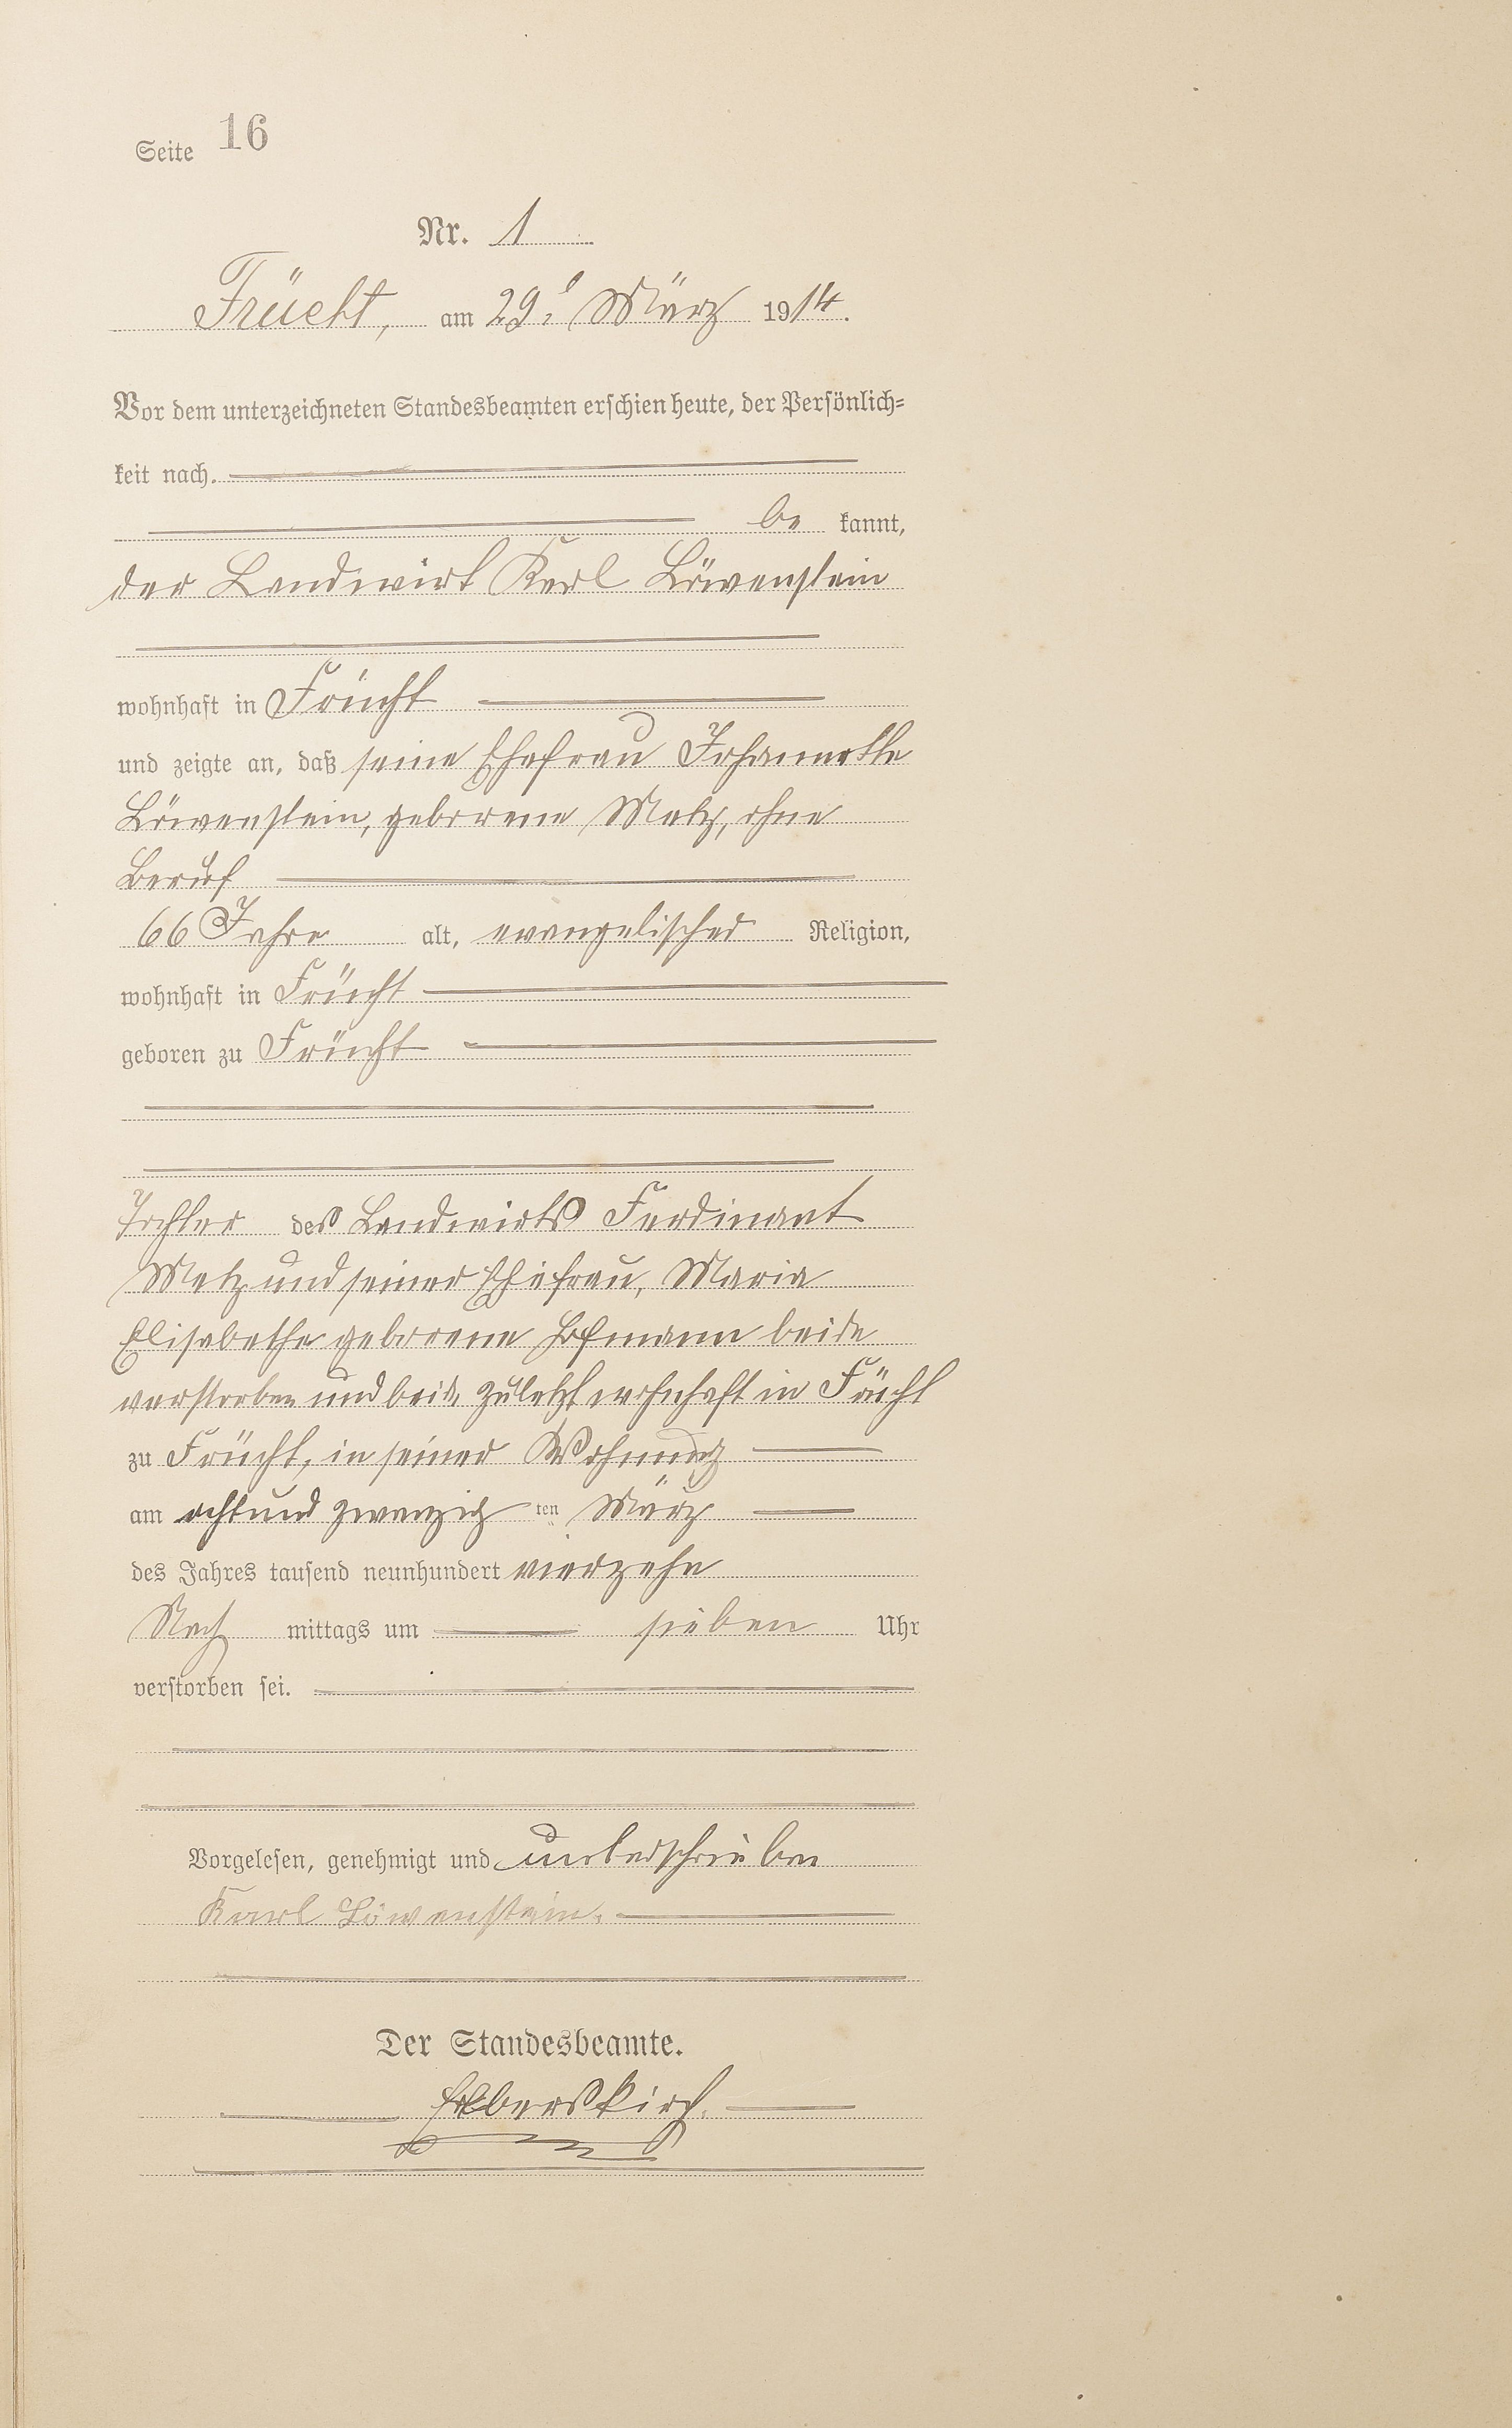 Seite 16
Nr. 1
Frücht, am 29. März 1914.
Vor dem unterzeichneten Standesbeamten erschien heute, der Persönlich=
keit nach
be kannt,
der Landwirt Karl Löwenstein
wohnhaft in Frücht
und zeigte an, daß seine Ehefrau Johannette
Löwenstein, geborene Metz, ohne
Beruf
66 Jahre alt, evangelischer Religion,
wohnhaft in Frücht
geboren zu Frücht
Tochter des Landwirts Ferdinant
Metz und seiner Ehefrau, Maria
Elisabethe geborene Hofmann beide
verstorben und beide zuletzt wohnhaft in Frücht
zu Frücht, in seiner Wohnung
am achtund zwanzig ten März
des Jahres tausend neunhundert vierzehn
Nach mittags um sieben Uhr
verstorben sei.
Vorgelesen, genehmigt und unterschrieben
Karl Löwenstein.
Der Standesbeamte.
Elberskirch.